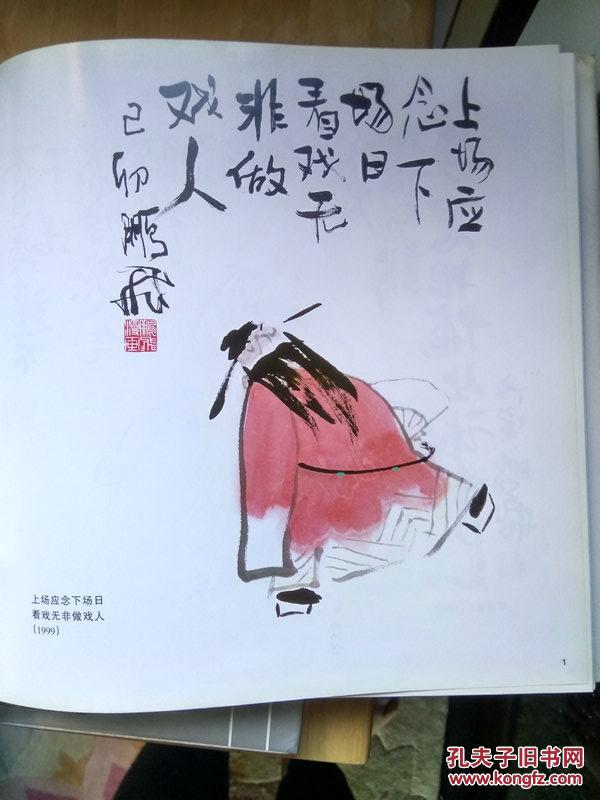 上场应
念下
场日
看戏无
非做
戏人
己卯鹏飞
上场应念下场日
看戏无非做戏人
(1999)
1
孔夫子旧书网
www.kongfz.com